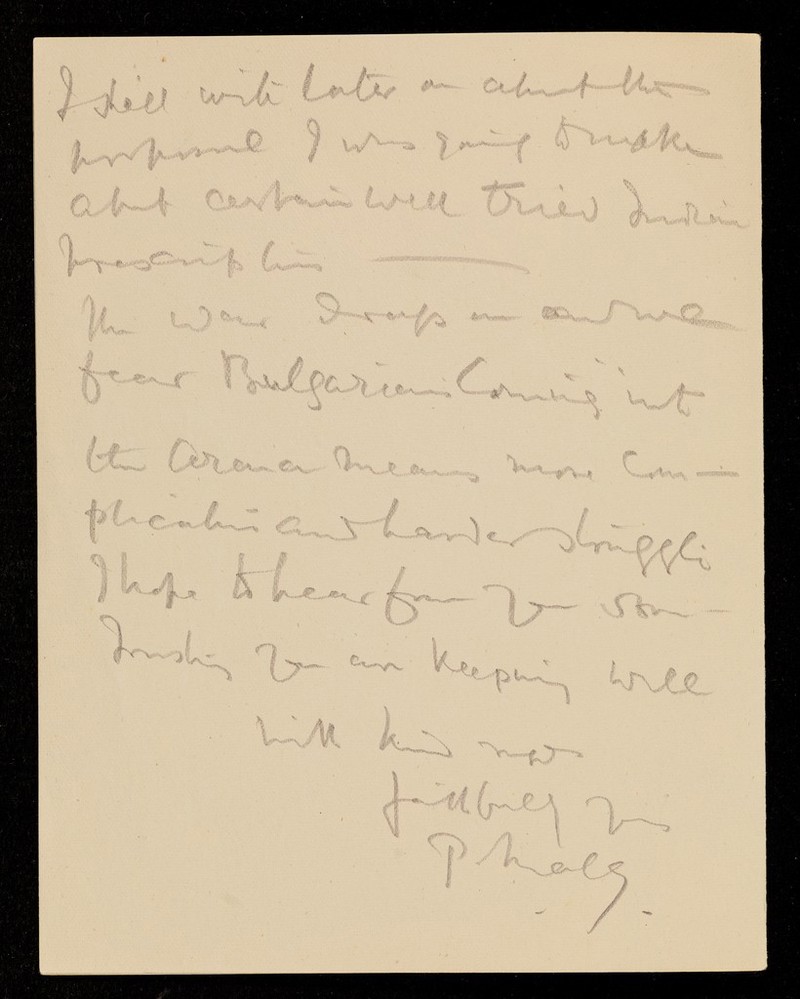 I shall write later on about the
proposal I was going to make
about certain well tried Indian
prescriptions —
The war drags on and we
fear Bulgarians coming into
the arena means more com-
plications and harder struggle
I hope to hear from you soon —
Trusting you are keeping well
with kind regards
faithfully yours